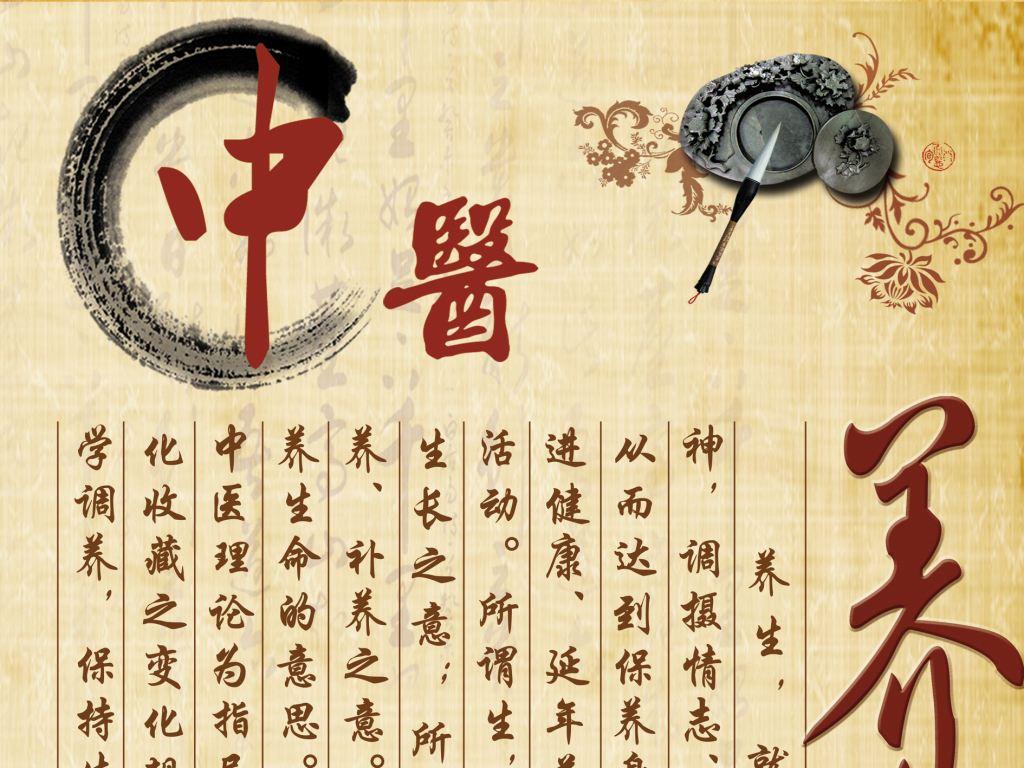 中醫
养
养生，就
神，调摄情志、
从而达到保养身
进健康、延年益
活动。所谓生，
生长之意；所
养、补养之意。
养生命的意思。
中医理论为指导
化收藏之变化规
学调养，保持生